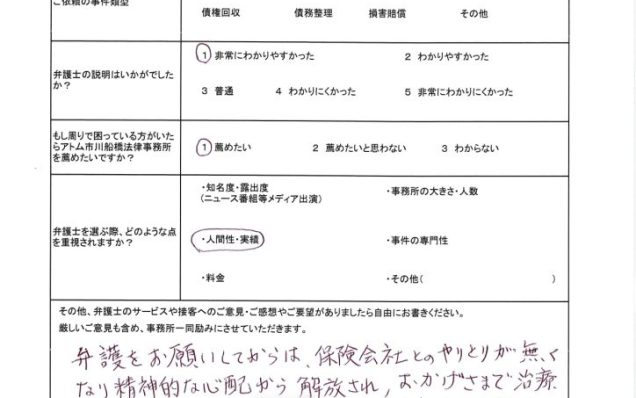 ご依頼の事件類型
債権回収 債務整理 損害賠償 その他
弁護士の説明はいかがでしたか？
1 非常にわかりやすかった 2 わかりやすかった
3 普通 4 わかりにくかった 5 非常にわかりにくかった
もし周りで困っている方がいたらアトム市川船橋法律事務所を薦めたいですか？
1 薦めたい 2 薦めたいと思わない 3 わからない
弁護士を選ぶ際、どのような点を重視されますか？
・知名度・露出度
（ニュース番組等メディア出演）
・事務所の大きさ・人数
・人間性・実績 ・事件の専門性
・料金 ・その他（ ）
その他、弁護士のサービスや接客へのご意見・ご感想やご要望がありましたら自由にお書きください。
厳しいご意見も含め、事務所一同励みにさせていただきます。
弁護をお願いしてからは、保険会社とのやりとりが無く
なり精神的な心配から解放され、おかげさまで治療